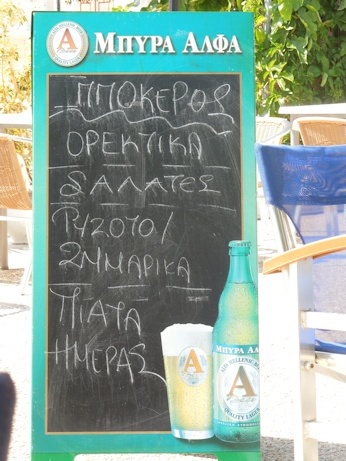 ΜΠΥΡΑ ΑΛΦΑ
ΙΠΠΟΚΕΡΟΣ
ΟΡΕΚΤΙΚΑ
ΣΑΛΑΤΕΣ
ΡΙΖΟΤΟ/
ΖΥΜΑΡΙΚΑ
ΠΙΑΤΑ
ΗΜΕΡΑΣ
ΜΠΥΡΑ ΑΛ
A
QUALITY LAGER